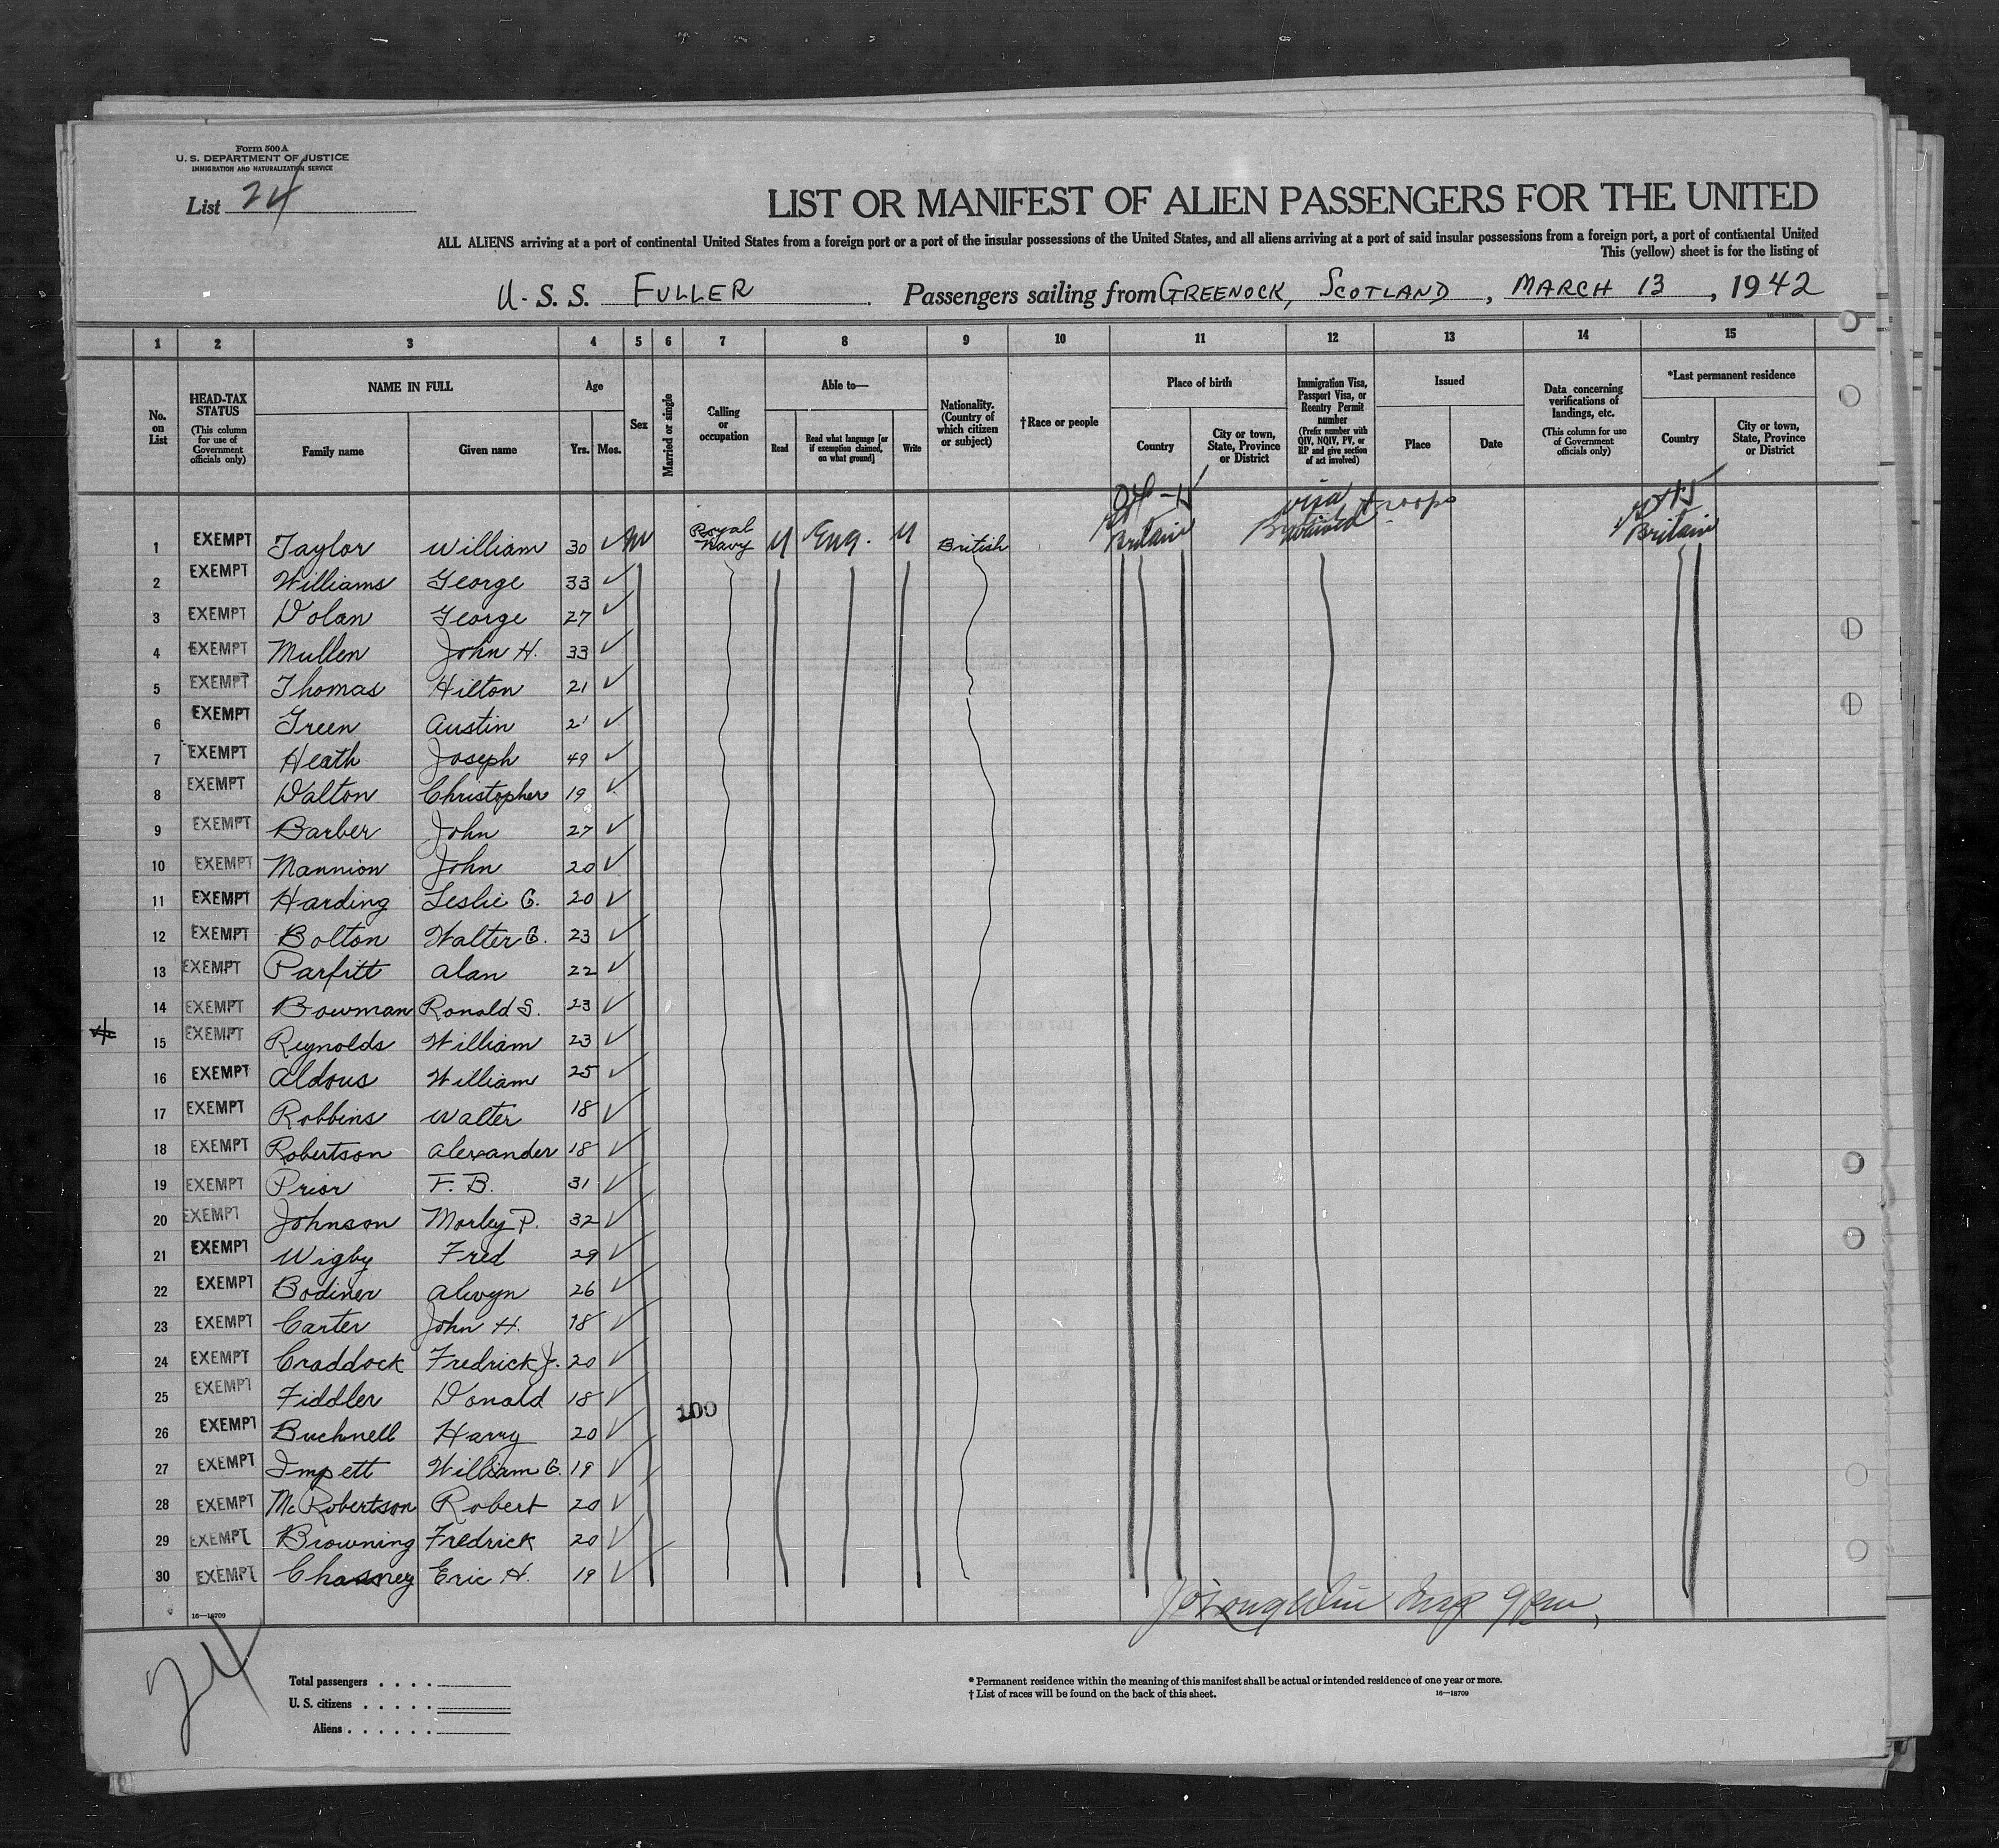 Form 500 A
U. S. DEPARTMENT OF JUSTICE
IMMIGRATION AND NATURALIZATION SERVICE
List 24
LIST OR MANIFEST OF ALIEN PASSENGERS FOR THE UNITED
ALL ALIENS arriving at a port of continental United States from a foreign port or a port of the insular possessions of the United States, and all aliens arriving at a port of said insular possessions from a foreign port, a port of continental United
This (yellow) sheet is for the listing of
U. S. S. FULLER Passengers sailing from GREENOCK, SCOTLAND, MARCH 13, 1942
16—18709
1 2 3 4 5 6 7 8 9 10 11 12 13 14 15
No. on List
HEAD-TAX STATUS (This column for use of Government officials only)
NAME IN FULL
Family name Given name
Age
Yrs. Mos.
Sex
Married or single
Calling or occupation
Able to—
Read
Read what language [or if exemption claimed, on what ground]
Write
Nationality. (Country of which citizen or subject)
†Race or people
Place of birth
Country
City or town, State, Province or District
Immigration Visa, Passport Visa, or Reentry Permit number (Prefix number with QIV, NQIV, PV, or RP and give section of act involved)
Issued
Place Date
Data concerning verifications of landings, etc. (This column for use of Government officials only)
*Last permanent residence
Country
City or town, State, Province or District
visa troops
1 EXEMPT Taylor William 30 M Royal Navy Y Eng. Y British Britain waived Britain
2 EXEMPT Williams George 33
3 EXEMPT Dolan George 27
4 EXEMPT Mullen John H. 33
5 EXEMPT Thomas Hilton 21
6 EXEMPT Green Austin 21
7 EXEMPT Heath Joseph 49
8 EXEMPT Dalton Christopher 19
9 EXEMPT Barber John 27
10 EXEMPT Mannion John 20
11 EXEMPT Harding Leslie G. 20
12 EXEMPT Bolton Walter G. 23
13 EXEMPT Parfitt Alan 22
14 EXEMPT Bowman Ronald S. 23
15 EXEMPT Reynolds William 23
16 EXEMPT Aldous William 25
17 EXEMPT Robbins Walter 18
18 EXEMPT Robertson Alexander 18
19 EXEMPT Prior F. B. 31
20 EXEMPT Johnson Morley P. 32
21 EXEMPT Wigby Fred 29
22 EXEMPT Bodiner Alwyn 26
23 EXEMPT Carter John H. 18
24 EXEMPT Craddock Fredrick J. 20
25 EXEMPT Fiddler Donald 18
100
26 EXEMPT Buchnell Harry 20
27 EXEMPT Impett William G. 19
28 EXEMPT McRobertson Robert 20
29 EXEMPT Browning Fredrick 20
30 EXEMPT Eric H. 19
16—18709
24
Total passengers
U. S. citizens
Aliens
* Permanent residence within the meaning of this manifest shall be actual or intended residence of one year or more.
† List of races will be found on the back of this sheet.
16—18709